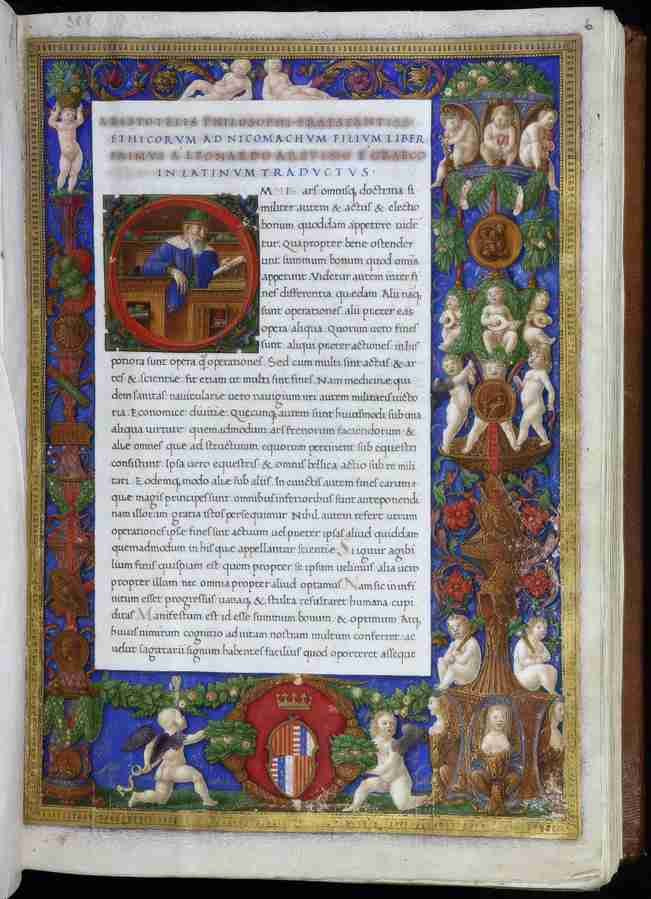 6
ARISTOTELIS PHILOSOPHI PRAESTANTISS
ETHICORVM AD NICOMACHVM FILIVM LIBER
PRIMVS A LEONARDO ARETINO E GRAECO
IN LATINVM TRADVCTVS·
ars omnisq; doctrina si
militer autem & actus & electio
bonum quoddam appetere uide
tur. Quapropter bene ostender
unt summum bonum quod omia
appetunt. Videtur autem inter fi
nes differentia quaedam Alii naq;
sunt operationes. alii preter eas
opera aliqua. Quorum uero fines
sunt aliqui preter actiones. in his
potiora sunt opera q̃ operationes. Sed cum multi sint actus & ar
tes & scientiae fit etiam ut multi sint fines. Nam medicinae qui
dem sanitas nauiculariae uero nauigium. rei autem militaris uicto
ria. Economice diuitie. Quecunq; autem sunt huiusmodi sub una
aliqua uirtute quemadmodum ars frenorum faciendorum &
aliae omnes que ad structuram equorum pertinent sub equestri
consistunt. Ipsa uero equestris & omnis bellica actio sub re mili
tari. Eodemq; modo aliae sub aliis. In cunctis autem fines earum
quae magis principes sunt. omnibus inferioribus sunt anteponendi
nam illorum gratia istos persequimur. Nihil autem refert utrum
operationes ipse fines sint actuum uel preter ipsas aliud quiddam
quemadmodum in his que appellantur scientie. Si igitur agibi
lium finis quispiam est quem propter se ipsum uelimus alia uero
propter illum nec omnia propter aliud optamus Nam sic in infi
nitum esset progressus uanaq; & stulta resultaret humana cupi
ditas Manifestum est id esse summum bonum & optimum Atq;
huius nimirum cognitio ad uitam nostram multum conferret: ac
uelut sagittarii signum habentes facilius quod oporteret asseque